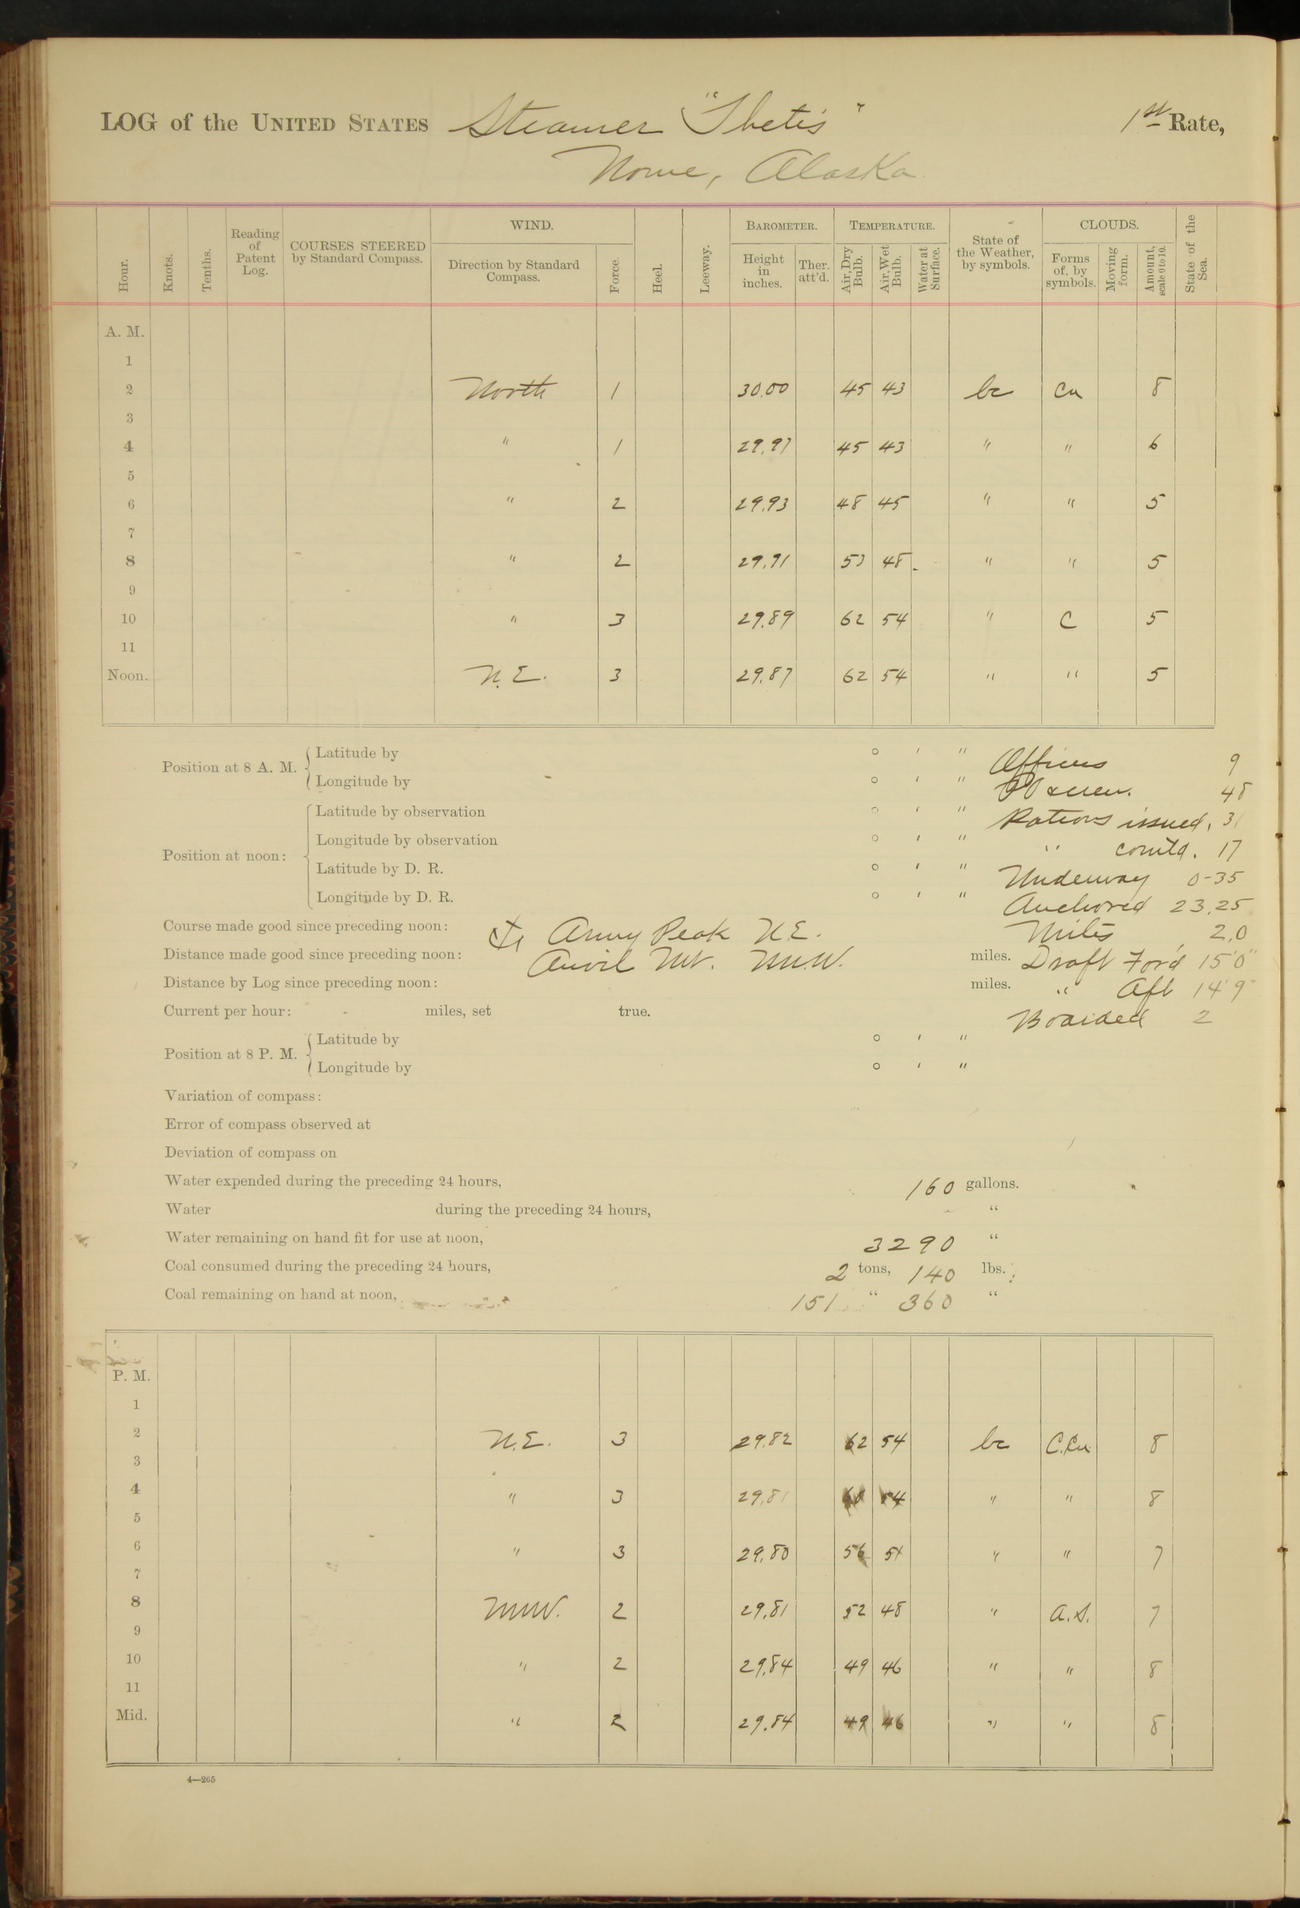 LOG of the UNITED STATES Steamer "Thetis" 1st Rate,
Nome, Alaska
Hour. Knots. Tenths. Reading of Patent Log. COURSES STEERED by Standard Compass. WIND. Direction by Standard Compass. Force. Heel. Leeway. BAROMETER. Height in inches. Ther. att'd. TEMPERATURE. Air, Dry Bulb. Air, Wet Bulb. Water at Surface. State of the Weather, by symbols. CLOUDS. Forms of, by symbols. Moving form. Amount, scale 0 to 10. State of the Sea.
A. M.
1
2 North 1 30.00 45 43 bc Cu 8
3
4 " 1 29.97 45 43 " " 6
5
6 " 2 29.93 48 45 " " 5
7
8 " 2 29.91 53 48 " " 5
9
10 " 3 29.89 62 54 " C 5
11
Noon. N.E. 3 29.87 62 54 " " 5
Position at 8 A. M. Latitude by ° ' " Officers 9
Longitude by ° ' " crew. 48
Position at noon: Latitude by observation ° ' " Rations issued. 31
Longitude by observation ° ' " " com'td. 17
Latitude by D. R. ° ' " Underway 0-35
Longitude by D. R. ° ' " Anchored 23.25
Course made good since preceding noon: Army Peak N.E. Miles 2.0
Distance made good since preceding noon: Anvil Mt. NNW. miles. Draft For'd 15'0"
Distance by Log since preceding noon: miles. " Aft 14'9"
Current per hour: miles, set true. Boarded 2
Position at 8 P. M. Latitude by ° ' "
Longitude by ° ' "
Variation of compass:
Error of compass observed at
Deviation of compass on
Water expended during the preceding 24 hours, 160 gallons.
Water during the preceding 24 hours, "
Water remaining on hand fit for use at noon, 3290 "
Coal consumed during the preceding 24 hours, 2 tons, 140 lbs.
Coal remaining on hand at noon, 151 " 360 "
P. M.
1
2 N.E. 3 29.82 62 54 bc C.Cu 8
3
4 " 3 29.81 54 " " 8
5
6 " 3 29.80 56 51 " " 7
7
8 NNW. 2 29.81 52 48 " A.S. 7
9
10 " 2 29.84 49 46 " " 8
11
Mid. " 2 29.84 49 46 " " 8
4—265